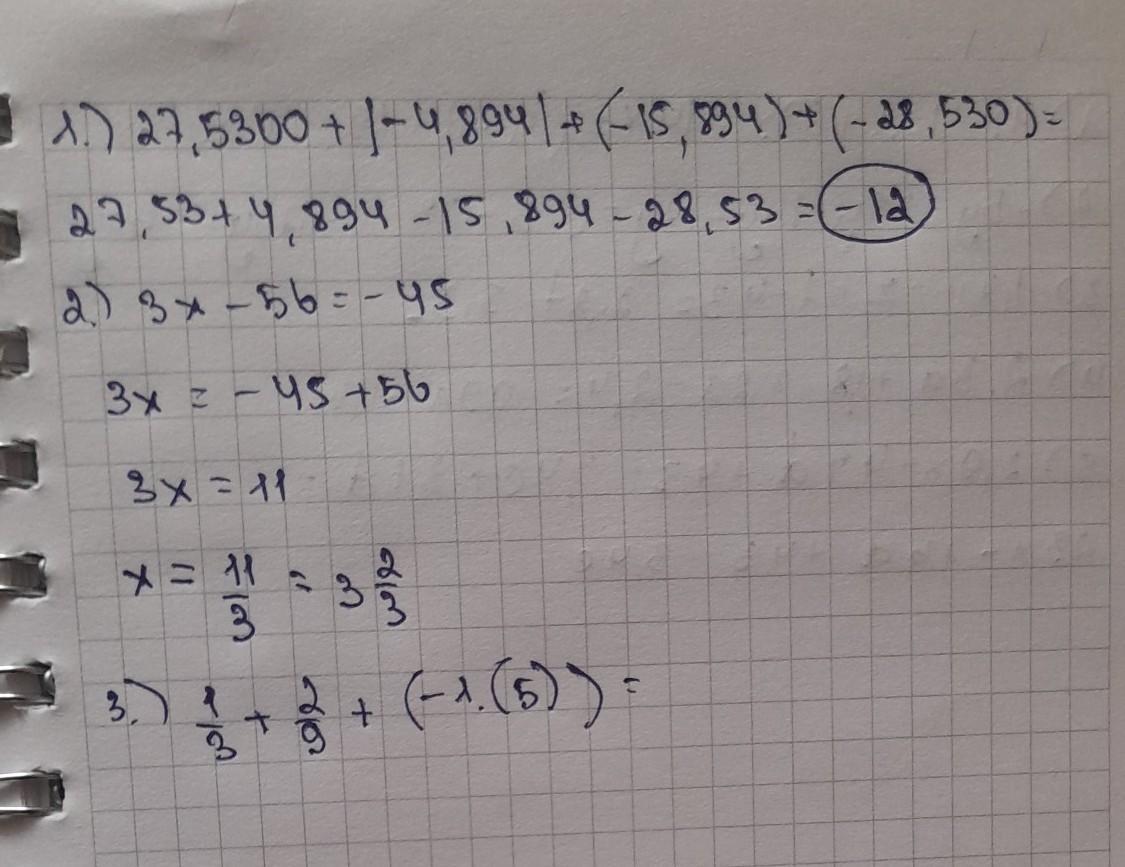 1.) 27,5300 + |-4,894| + (-15,894) + (-28,530) =
27,53 + 4,894 - 15,894 - 28,53 = -12
2.) 3x - 56 = -45
3x = -45 + 56
3x = 11
x = 11/3 = 3 2/3
3.) 1/3 + 2/9 + (-1.(5)) =